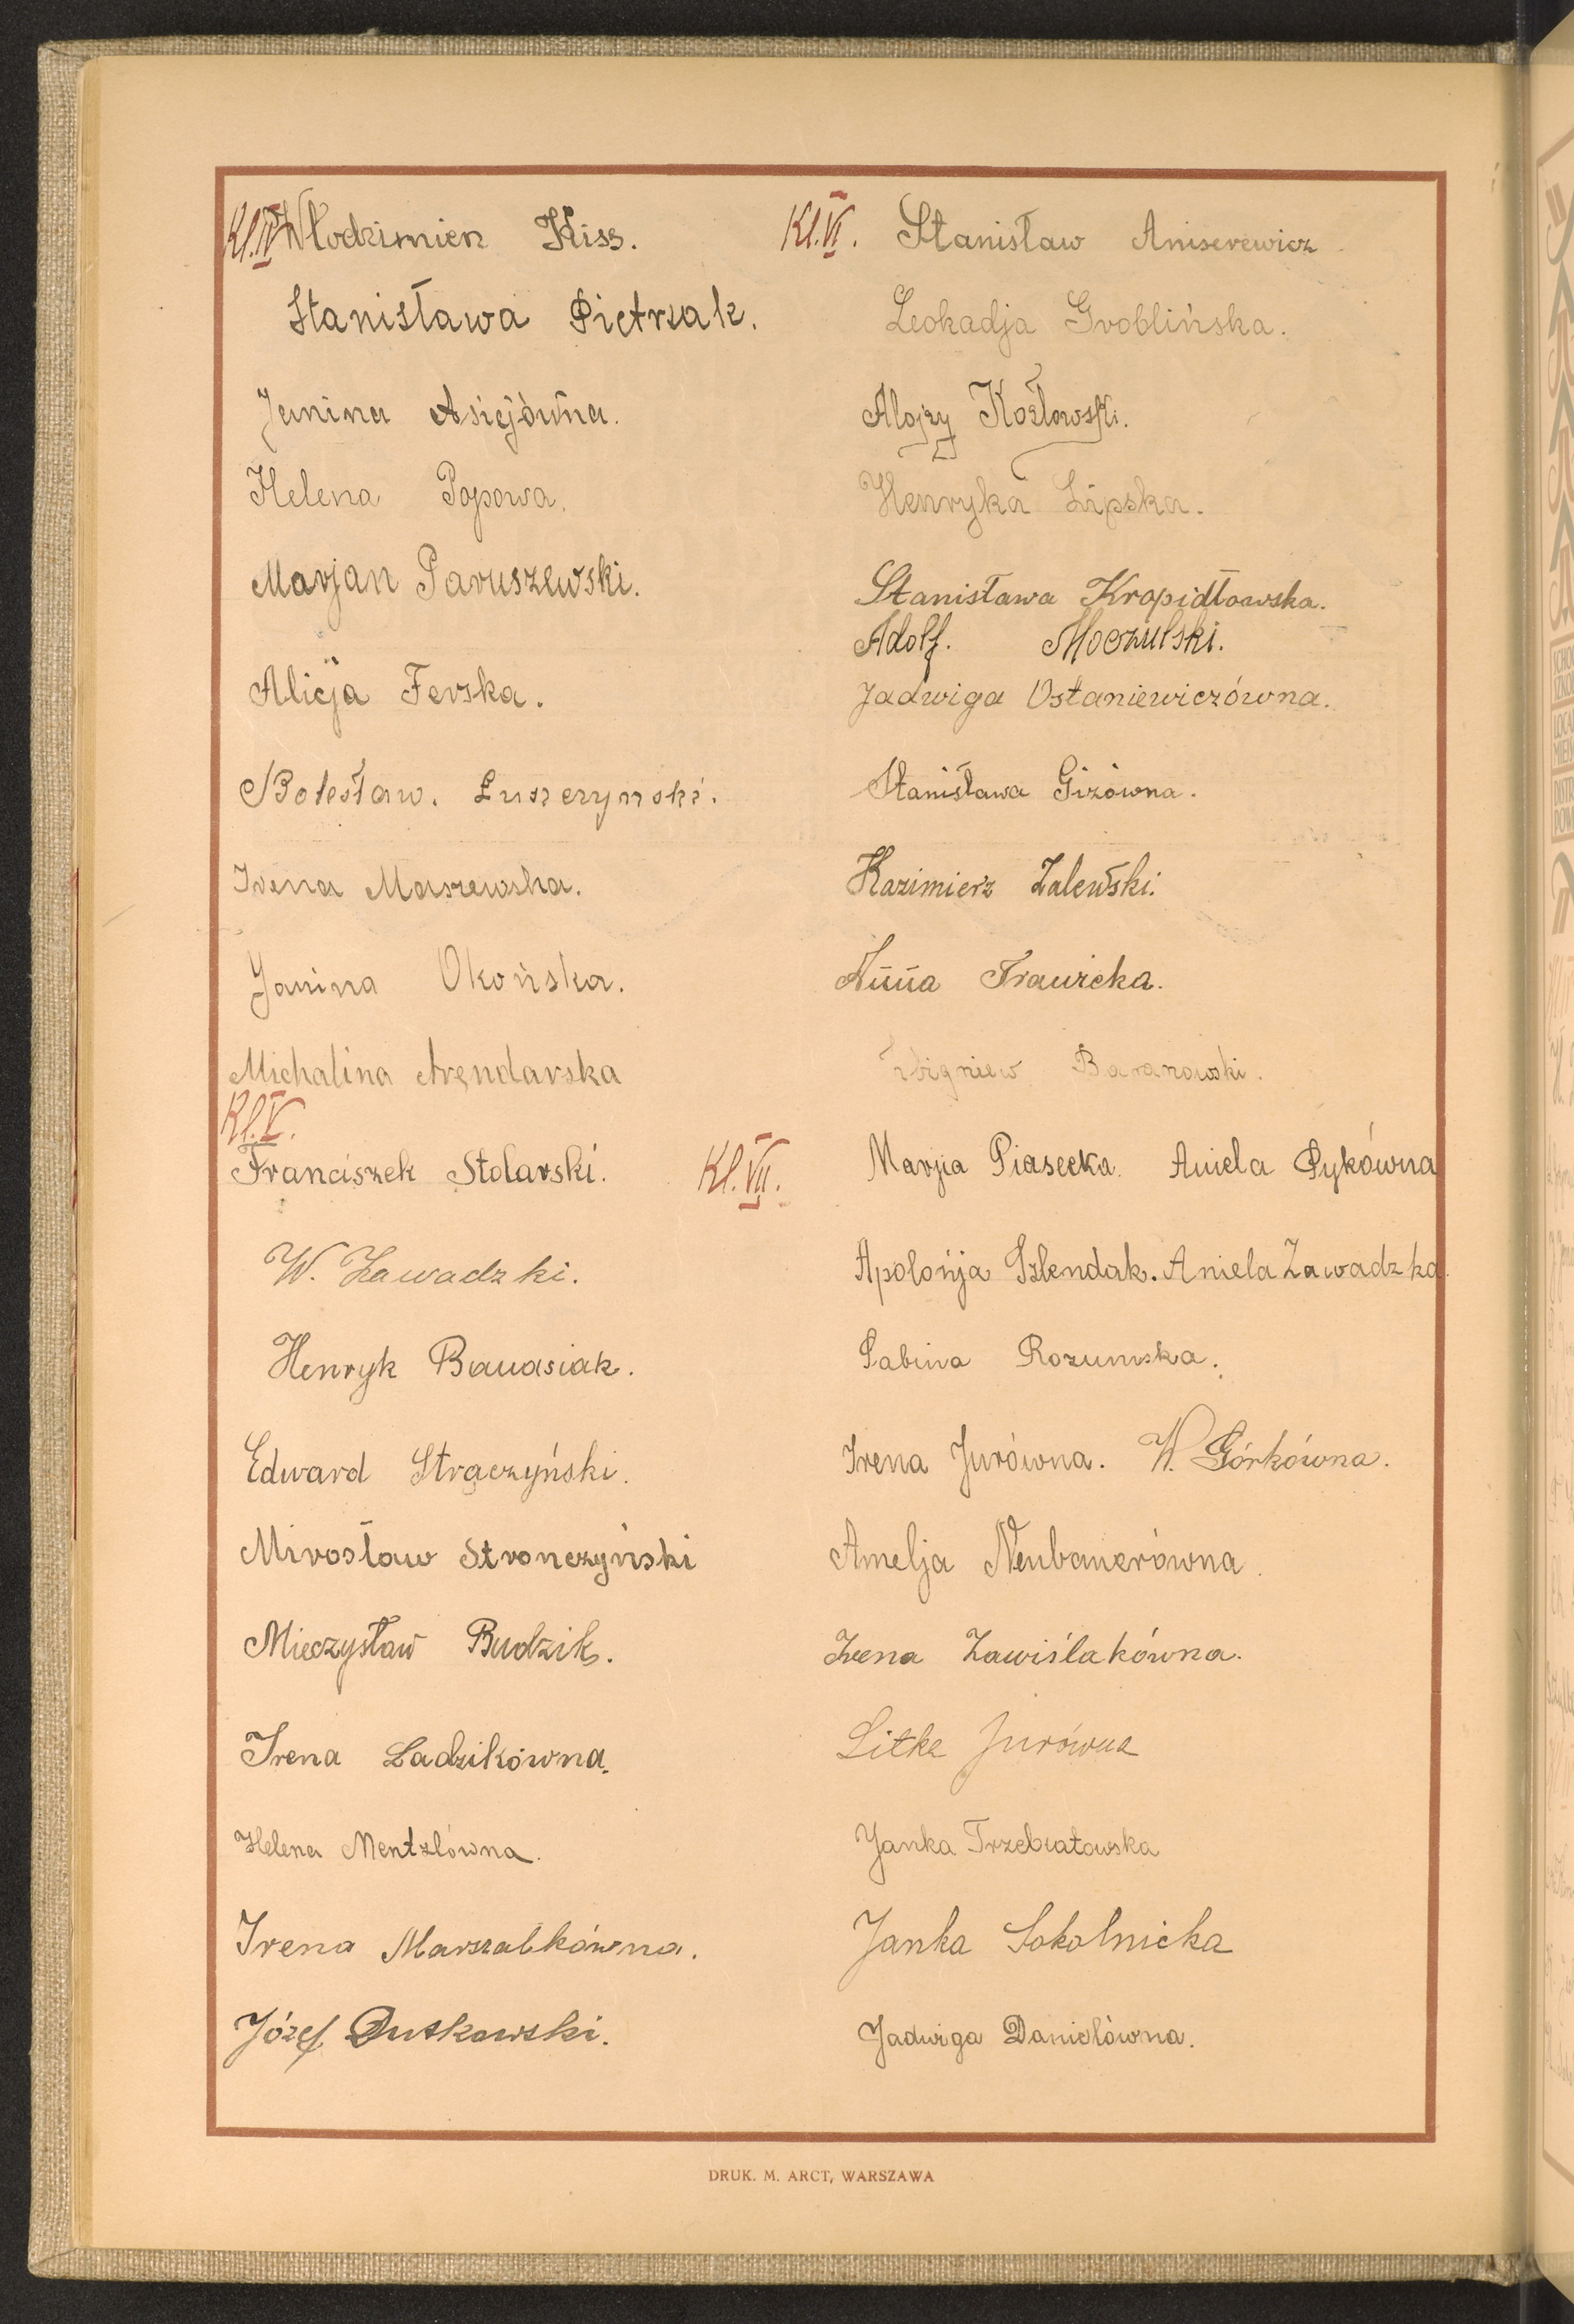 Kl. IV Włodzimierz Kiss.
Stanisława Pietrzak.
Janina Asiejówna.
Helena Popowa.
Marjan Paruszewski.
Alicja Ferska.
Bolesław. Łuszczynski.
Irena Maszewska.
Janina Okońska.
Michalina Arendarska
Kl. V.
Franciszek Stolarski.
W. Zawadzki.
Henryk Banasiak.
Edward Strączyński.
Mirosław Stronczyński
Mieczysław Budzik.
Irena Ladzikówna.
Helena Mentzlówna.
Irena Marszalkówna.
Józef Dutkowski.
Kl. VI. Stanisław Aniserewicz
Leokadja Groblińska.
Alojzy Kozłowski.
Henryka Lipska.
Stanisława Kropidłowska.
Adolf. Moczulski.
Jadwiga Ostaniewiczówna.
Stanisława Gizówna.
Kazimierz Zalewski.
Anna Trawicka.
Zbigniew Baranowski.
Kl. VII. Marja Piasecka. Aniela Pykówna
Apolonja Szlendak. Aniela Zawadzka.
Sabina Rozumska.
Irena Jurówna. W. Górkówna.
Amelja Neubauerówna.
Irena Zawiślakówna.
Litka Jurówna
Janka Trzebiatowska
Janka Sokolnicka
Jadwiga Danielówna.
DRUK. M. ARCT, WARSZAWA